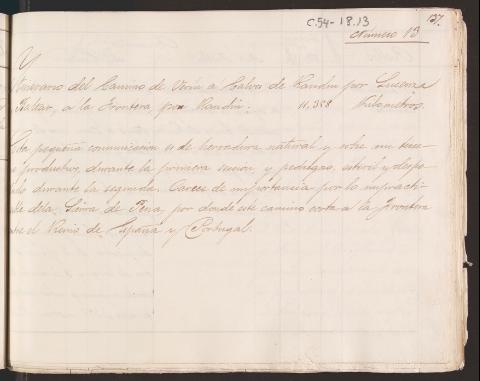 C.54-18.13
137.
Número 13
Y
tinerario del Camino de Verín a Calvos de Randín por
Baltar, a la Frontera por Randín. 11,358 Kilometros.
Esta pequeña comunicacion es de herradura natural y sobre un terre
productivo, durante la primera sección, y pedregoso, esteril y despo
durante la segunda. Carece de importancia por lo impracti
de la Sierra de Pena, por donde este camino corta a la Frontera
entre el Reino de España y Portugal.